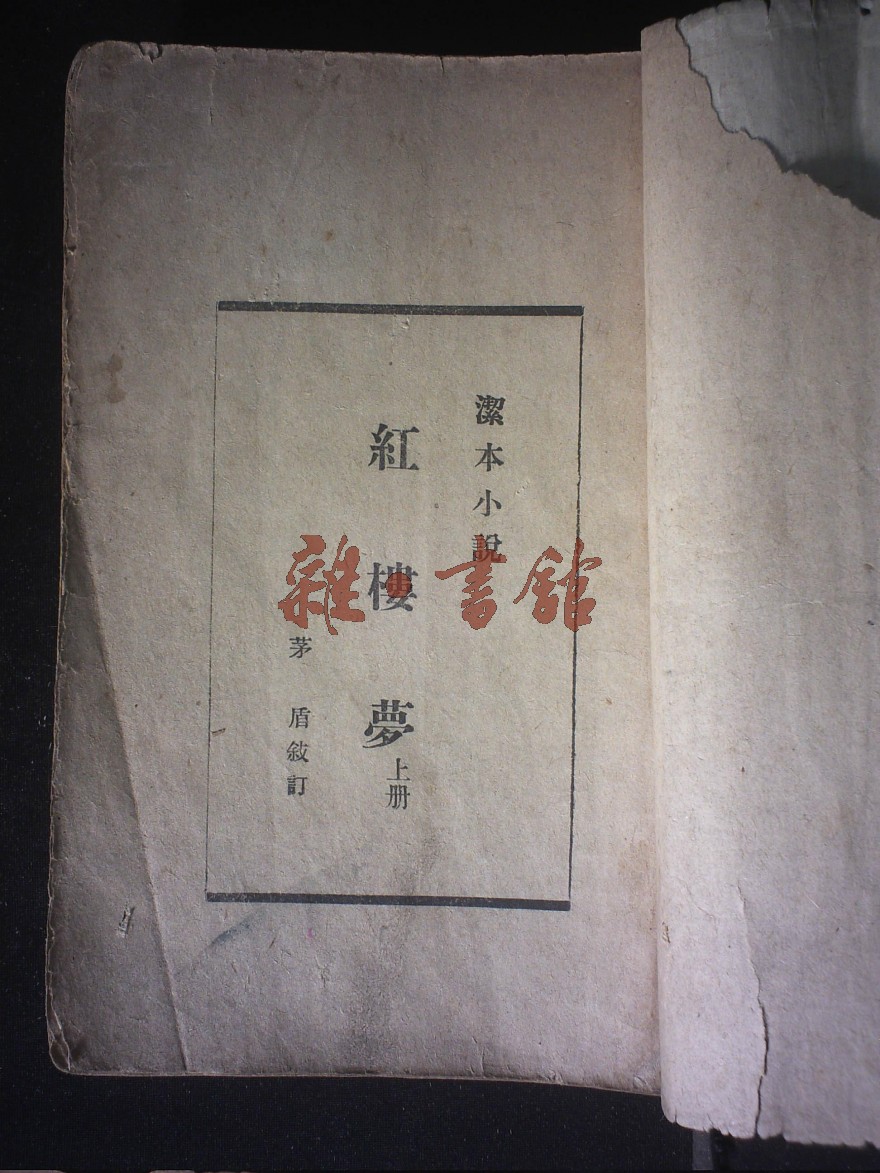 潔本小說
紅樓夢
上册
茅盾敍訂
雜書館